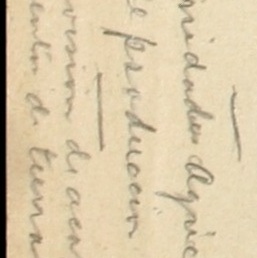 nidades Agríc
de producción
visión de acu
ento de tierra